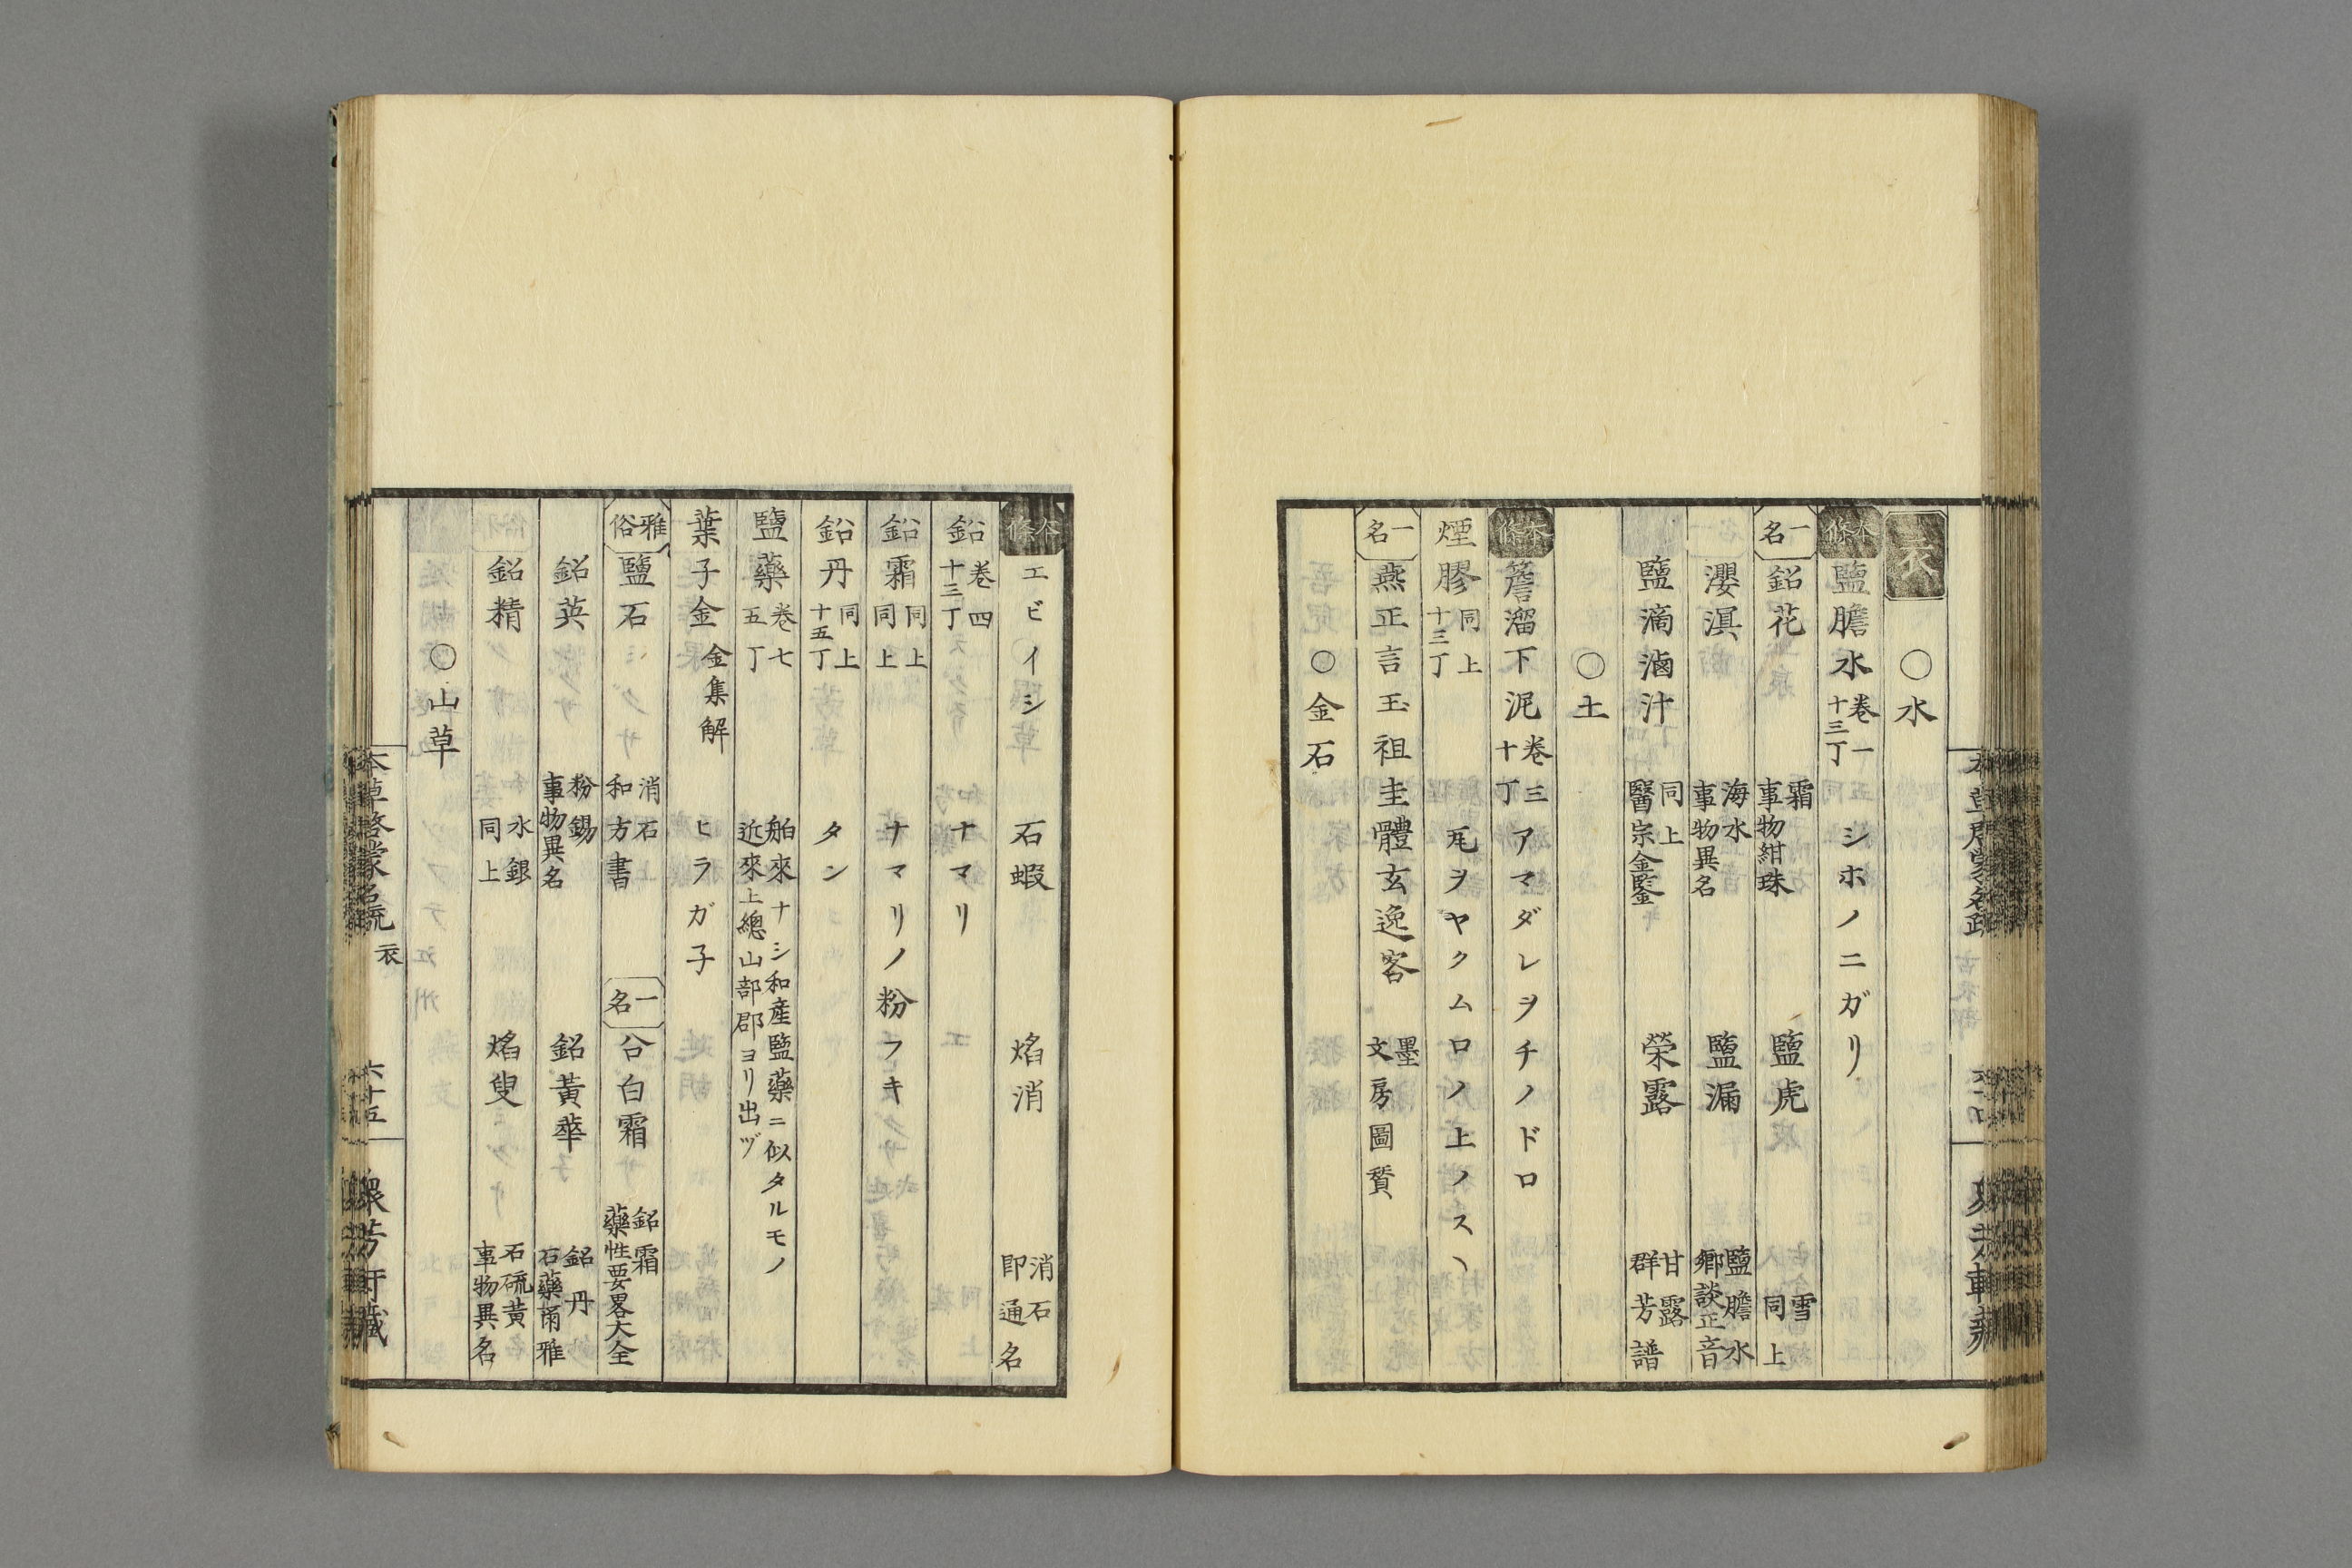 衣
○水
本條 鹽膽水 卷一 十三丁 シホノニガリ
一名 鉛花 霜 事物紺珠 鹽虎 雪 同上
瀴溟 海水 事物異名 鹽漏 鹽膽水 鄉談正音
鹽滴滷汁 同上 醫宗金鑒 榮露 甘露 群芳譜
○土
本條 簷溜下泥 卷三 十丁 アマダレヲチノドロ
煙膠 同上 十三丁 瓦ヲヤクムロノ上ノスヽ
一名 燕正言玉祖圭體玄逸客 墨 文房圖賛
○金石
本條 エビイシ 石蝦 焰消 消石 即通名
鉛 卷四 十三丁 ナマリ
鉛霜 同上 同上 ナマリノ粉フキ
鉛丹 同上 十五丁 タン
鹽藥 卷七 五丁 舶來ナシ和産鹽藥ニ似タルモノ 近來上總山部郡ヨリ出ヅ
葉子金 金集解 ヒラガ子
雅俗 鹽石 消石 和方書 一名 㕣白霜 鉛霜 藥性要畧大全
鉛英 粉錫 事物異名 鉛黃華 鉛丹 石藥爾雅
鉛精 水銀 同上 焰叟 石硫黃 事物異名
○山草
本草啓蒙名疏 衣 六十五 衆芳軒藏